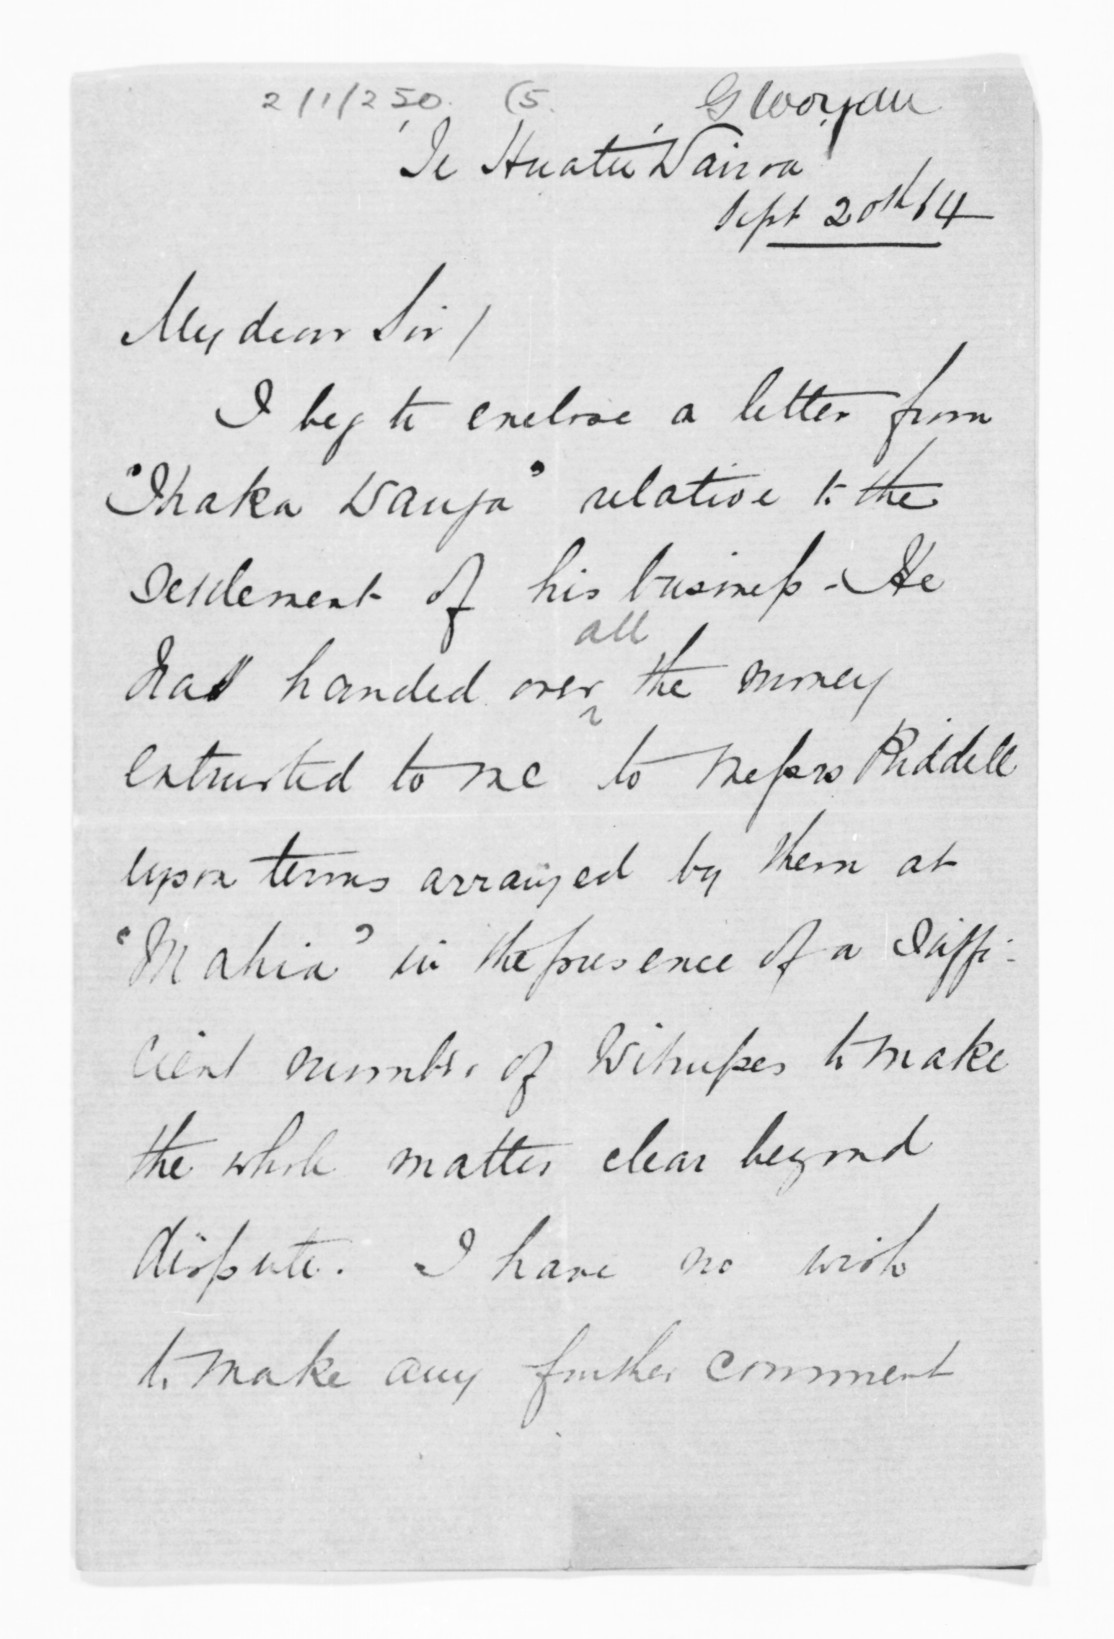 2/1/250. (5.
G Worgan
'Te Huatu' Wairoa
Sept 20th 64
My dear Sir/
I beg to enclose a letter from
"Ihaka Wanga" relative to the
Settlement of his business - He
has handed over all the money
entrusted to me to Messrs Riddell
upon terms arranged by them at
"Mahia" in the presence of a Suffi-
cient number of Witnesses to make
the whole matter clear beyond
dispute. I have no wish
to make any further comment